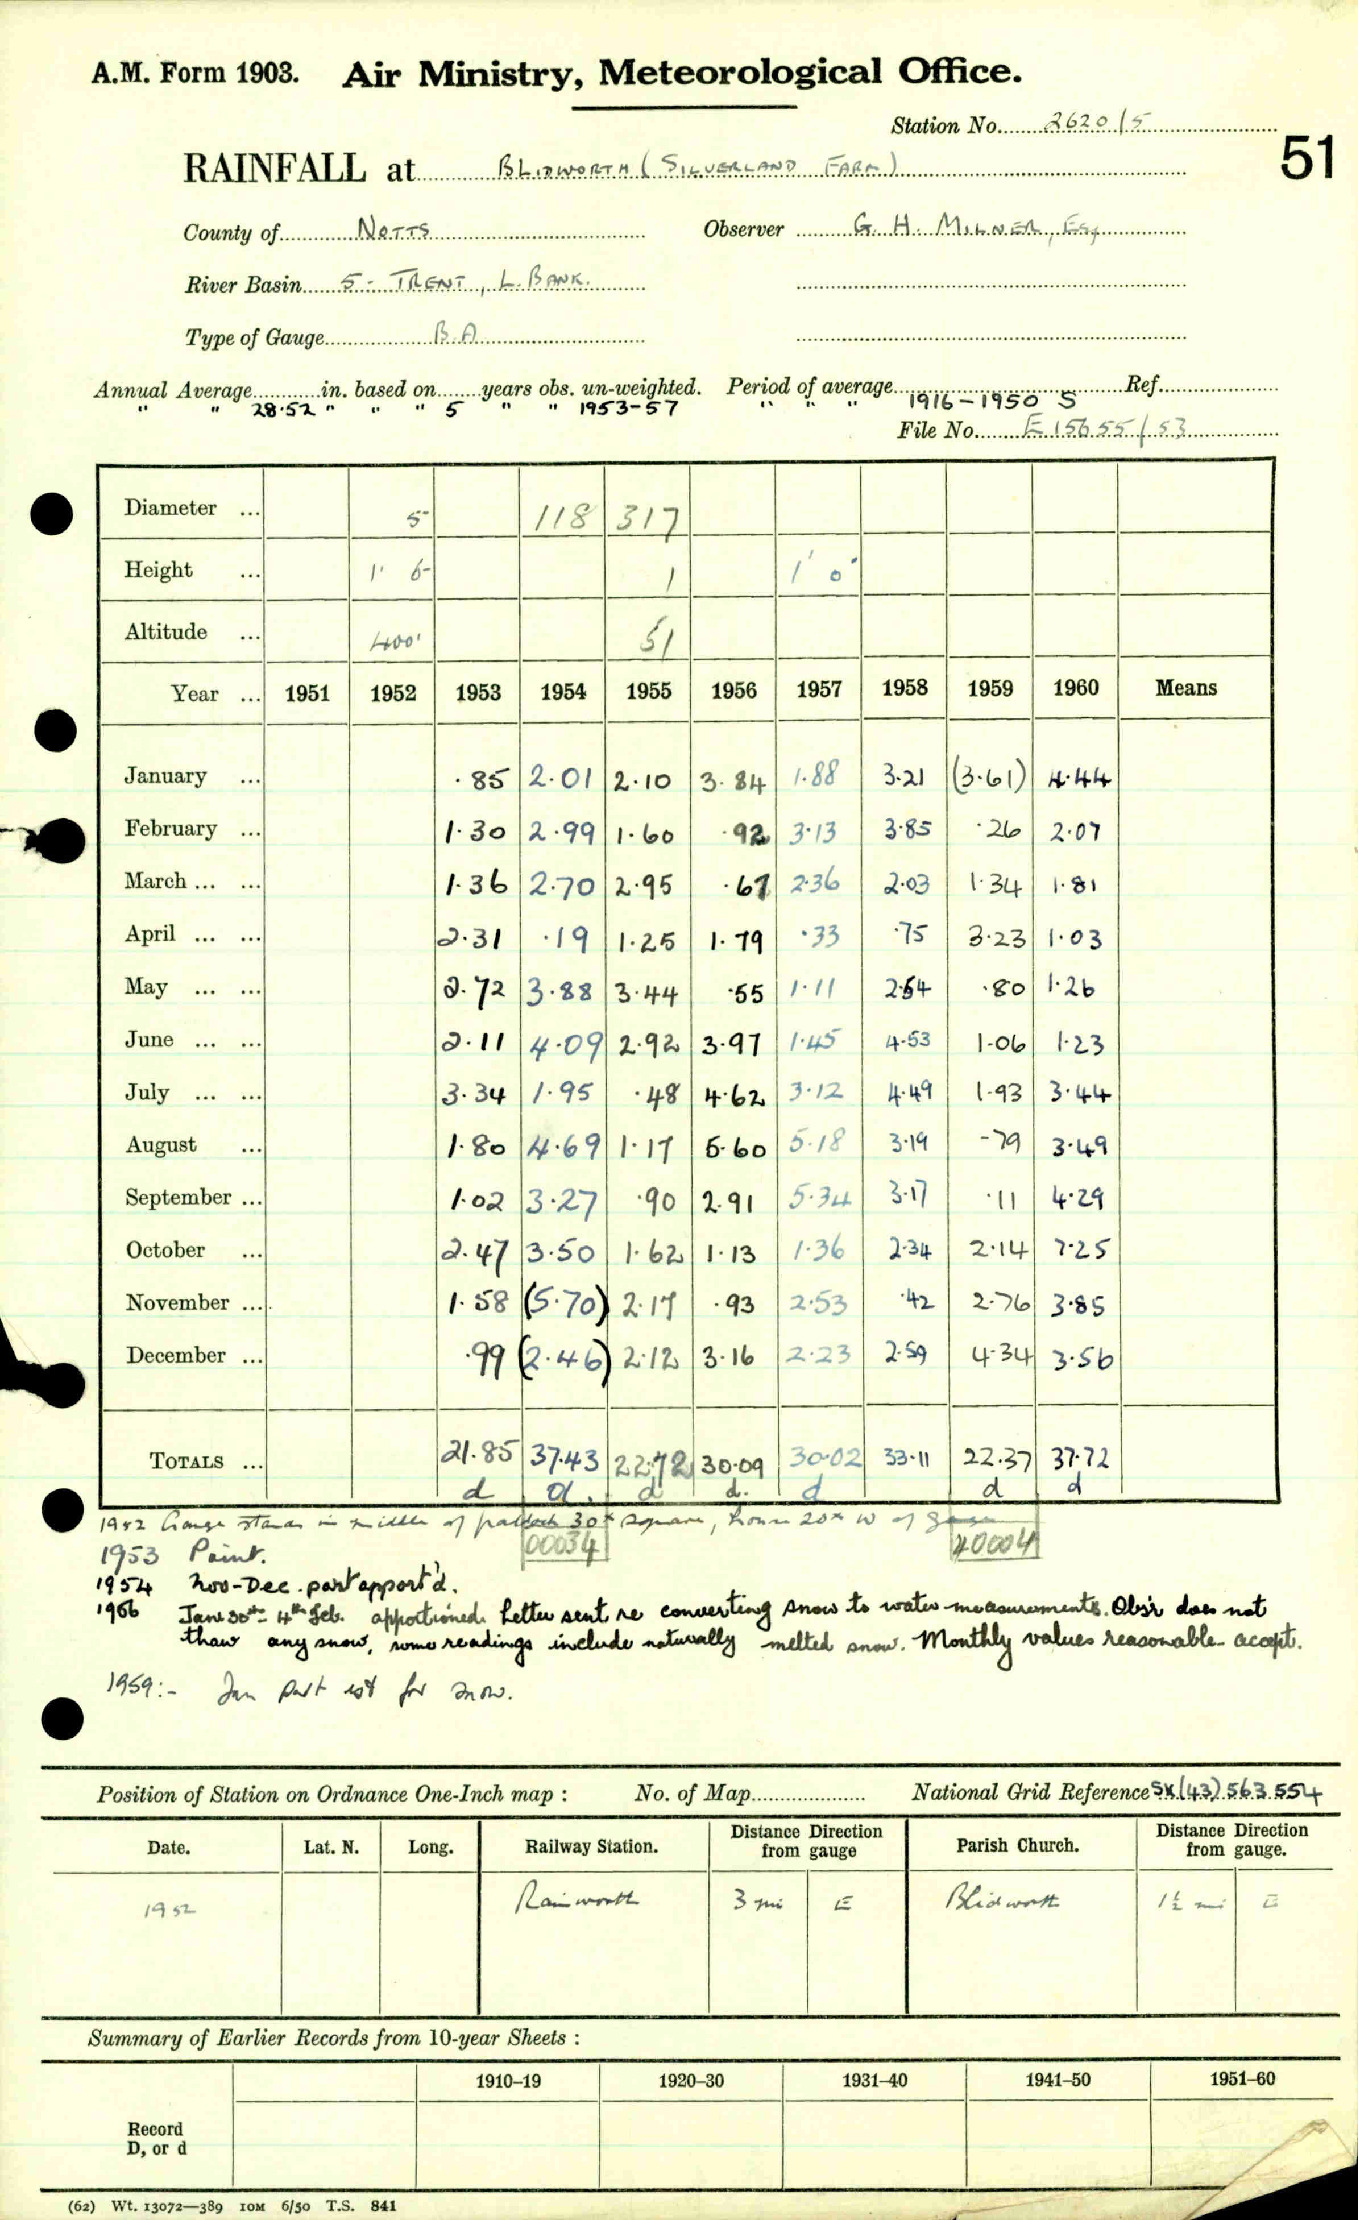 A.M. Form 1903. Air Ministry, Meteorological Office.
Station No. 2620/5
51
RAINFALL at BLIDWORTH (SILVERLAND FARM)
County of NOTTS Observer G. H. MILNER, ESQ
River Basin 5 - TRENT, L. BANK.
Type of Gauge B.A
Annual Average in. based on years obs. un-weighted. Period of average Ref.
" " 28.52 " " " 5 " " 1953-57 " " " 1916-1950 S
File No. E 15655/53
Diameter ... 5 118 317
Height ... 1' 6 1 1' 0"
Altitude ... 400' 51
Year ... 1951 1952 1953 1954 1955 1956 1957 1958 1959 1960 Means
January ... .85 2.01 2.10 3.84 1.88 3.21 (3.61) 4.44
February ... 1.30 2.99 1.60 .92 3.13 3.85 .26 2.07
March ... ... 1.36 2.70 2.95 .67 2.36 2.03 1.34 1.81
April ... ... 2.31 .19 1.25 1.79 .33 .75 3.23 1.03
May ... ... 2.72 3.88 3.44 .55 1.11 2.54 .80 1.26
June ... ... 2.11 4.09 2.92 3.97 1.45 4.53 1.06 1.23
July ... ... 3.34 1.95 .48 4.62 3.12 4.49 1.93 3.44
August ... 1.80 4.69 1.17 5.60 5.18 3.19 .79 3.49
September ... 1.02 3.27 .90 2.91 5.34 3.17 .11 4.29
October ... 2.47 3.50 1.62 1.13 1.36 2.34 2.14 7.25
November ... 1.58 (5.70) 2.17 .93 2.53 .42 2.76 3.85
December ... .99 (2.46) 2.12 3.16 2.23 2.59 4.34 3.56
TOTALS ... 21.85 37.43 22.72 30.09 30.02 33.11 22.37 37.72
d d. d d. d d d
1952 Gauge stands in middle of paddock 30x square, house 20x W of gauge
00034 40004
1953 Paint.
1954 Nov-Dec. part apport'd.
1956 Jan 30th - 4th Feb. apportioned. Letter sent re converting snow to water measurements. Obs'r does not
thaw any snow, some readings include naturally melted snow. Monthly values reasonable - accept.
1959:- Jan part est for snow.
Position of Station on Ordnance One-Inch map : No. of Map National Grid Reference SK(43) 563 554
Date. Lat. N. Long. Railway Station. Distance from Direction gauge Parish Church. Distance from Direction gauge.
1952 Rainworth 3 mi E Blidworth 1½ mi E
Summary of Earlier Records from 10-year Sheets :
1910–19 1920–30 1931–40 1941–50 1951–60
Record
D, or d
(62) Wt. 13072—389 10M 6/50 T.S. 841